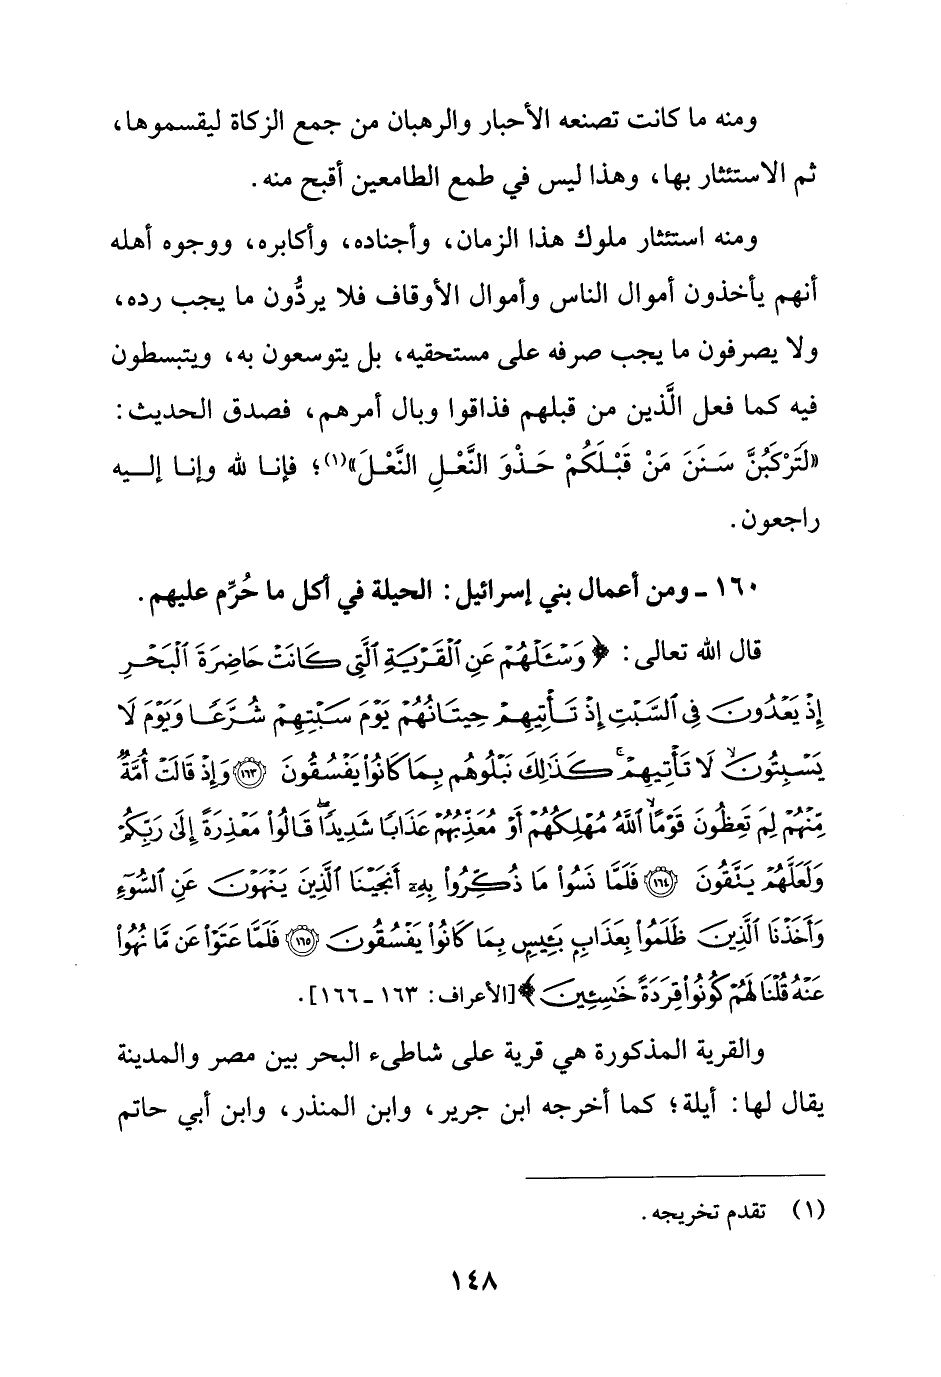 ومنه ما كانت تصنعه الأحبار والرهبان من جمع الزكاة ليقسموها،
ثم الاستئثار بها، وهذا ليس في طمع الطامعين أقبح منه.
ومنه استئثار ملوك هذا الزمان، وأجناده، وأكابره، ووجوه أهله
أنهم يأخذون أموال الناس وأموال الأوقاف فلا يردُّون ما يجب رده،
ولا يصرفون ما يجب صرفه على مستحقيه، بل يتوسعون به، ويتبسطون
فيه كما فعل الَّذين من قبلهم فذاقوا وبال أمرهم، فصدق الحديث:
«لَتَرْكَبُنَّ سَنَنَ مَنْ قَبْلَكُمْ حَذْوَ النَّعْلِ النَّعْلَ»(١)؛ فإنا لله وإنا إليه
راجعون.
١٦٠ - ومن أعمال بني إسرائيل: الحيلة في أكل ما حُرِّم عليهم.
قال الله تعالى: ﴿وَسْـَٔلْهُمْ عَنِ ٱلْقَرْيَةِ ٱلَّتِى كَانَتْ حَاضِرَةَ ٱلْبَحْرِ
إِذْ يَعْدُونَ فِى ٱلسَّبْتِ إِذْ تَأْتِيهِمْ حِيتَانُهُمْ يَوْمَ سَبْتِهِمْ شُرَّعًا وَيَوْمَ لَا
يَسْبِتُونَ ۙ لَا تَأْتِيهِمْ ۚ كَذَٰلِكَ نَبْلُوهُم بِمَا كَانُوا۟ يَفْسُقُونَ ﴿١٦٣﴾ وَإِذْ قَالَتْ أُمَّةٌ
مِّنْهُمْ لِمَ تَعِظُونَ قَوْمًا ۙ ٱللَّهُ مُهْلِكُهُمْ أَوْ مُعَذِّبُهُمْ عَذَابًا شَدِيدًا ۖ قَالُوا۟ مَعْذِرَةً إِلَىٰ رَبِّكُمْ
وَلَعَلَّهُمْ يَتَّقُونَ ﴿١٦٤﴾ فَلَمَّا نَسُوا۟ مَا ذُكِّرُوا۟ بِهِۦٓ أَنجَيْنَا ٱلَّذِينَ يَنْهَوْنَ عَنِ ٱلسُّوٓءِ
وَأَخَذْنَا ٱلَّذِينَ ظَلَمُوا۟ بِعَذَابٍۭ بَـِٔيسٍۭ بِمَا كَانُوا۟ يَفْسُقُونَ ﴿١٦٥﴾ فَلَمَّا عَتَوْا۟ عَن مَّا نُهُوا۟
عَنْهُ قُلْنَا لَهُمْ كُونُوا۟ قِرَدَةً خَٰسِـِٔينَ﴾ [الأعراف: ١٦٣ - ١٦٦].
والقرية المذكورة هي قرية على شاطىء البحر بين مصر والمدينة
يقال لها: أيلة؛ كما أخرجه ابن جرير، وابن المنذر، وابن أبي حاتم
(١) تقدم تخريجه.
١٤٨